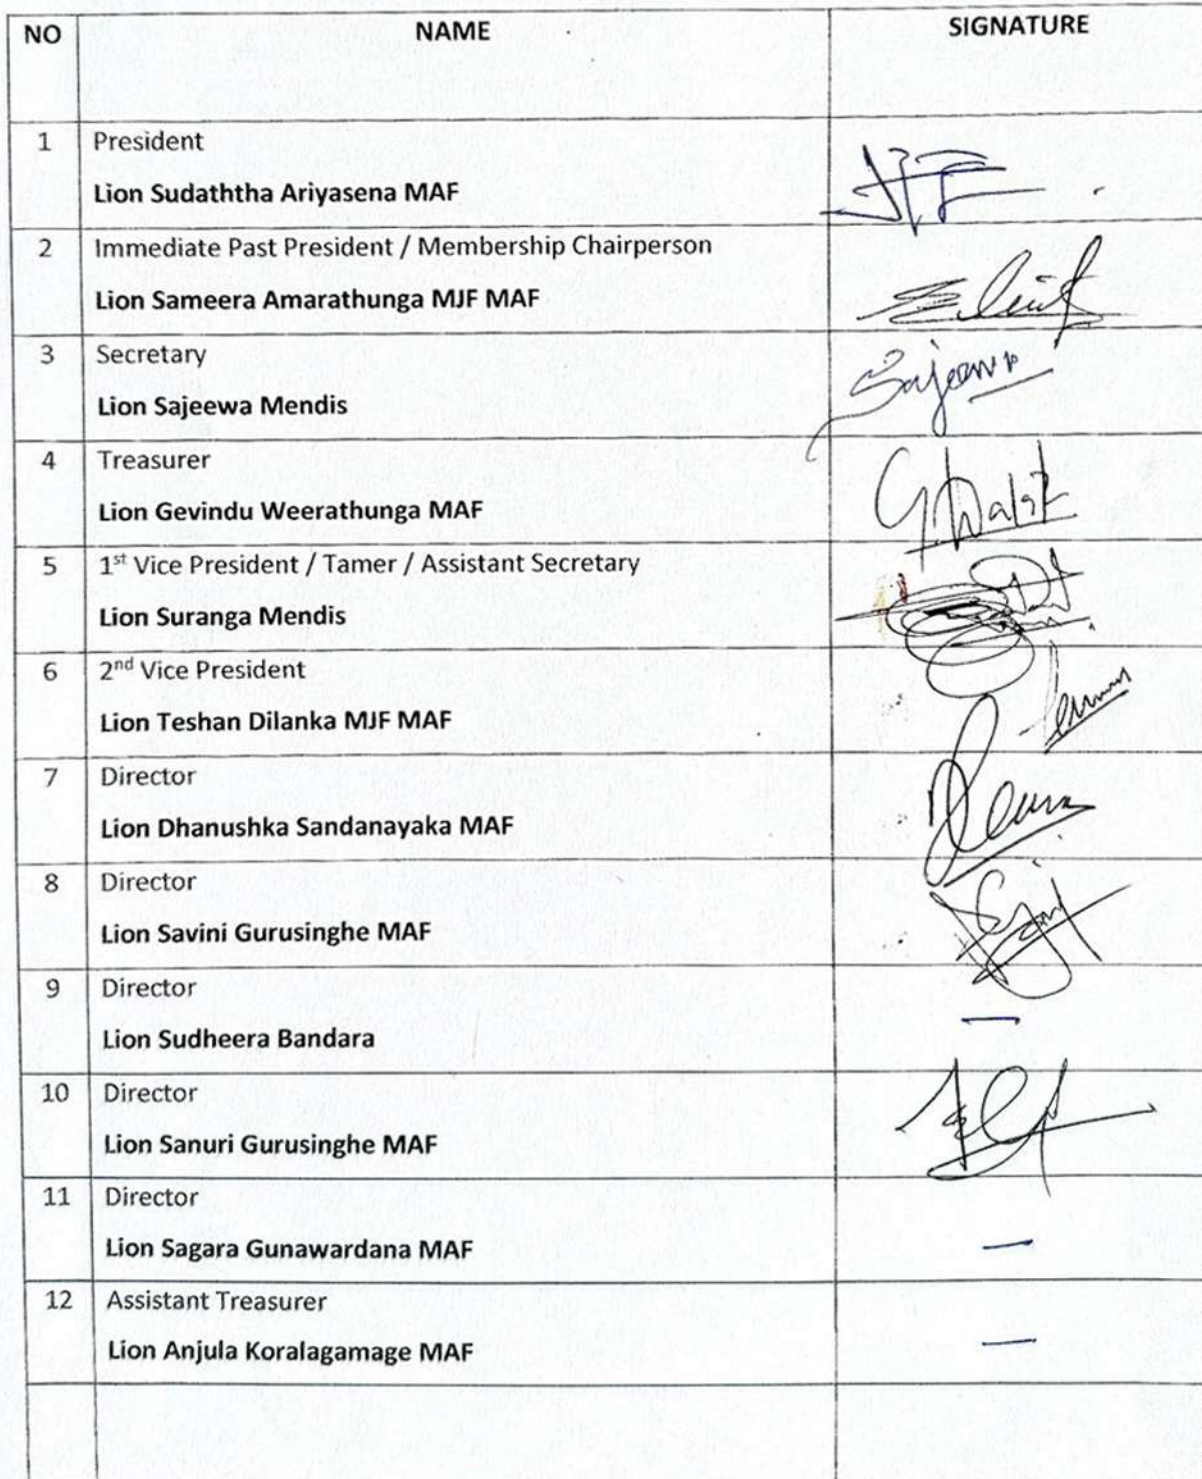 NO NAME SIGNATURE
1 President
Lion Sudaththa Ariyasena MAF
2 Immediate Past President / Membership Chairperson
Lion Sameera Amarathunga MJF MAF
3 Secretary
Lion Sajeewa Mendis
4 Treasurer
Lion Gevindu Weerathunga MAF
5 1st Vice President / Tamer / Assistant Secretary
Lion Suranga Mendis
6 2nd Vice President
Lion Teshan Dilanka MJF MAF
7 Director
Lion Dhanushka Sandanayaka MAF
8 Director
Lion Savini Gurusinghe MAF
9 Director
Lion Sudheera Bandara
10 Director
Lion Sanuri Gurusinghe MAF
11 Director
Lion Sagara Gunawardana MAF
12 Assistant Treasurer
Lion Anjula Koralagamage MAF